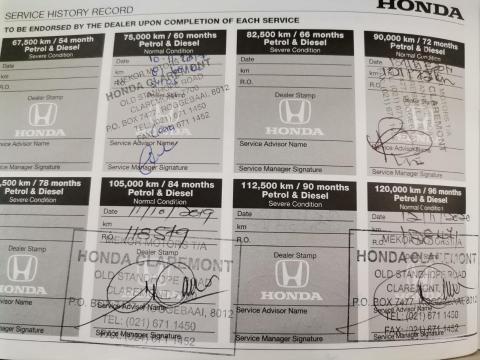 SERVICE HISTORY RECORD
HONDA
TO BE ENDORSED BY THE DEALER UPON COMPLETION OF EACH SERVICE
67,500 km / 54 month
Petrol & Diesel
Severe Condition
Date
km
R.O.
Dealer Stamp
HONDA
Service Advisor Name
Service Manager Signature
75,000 km / 60 months
Petrol & Diesel
Normal Condition
Date
km
R.O.
MEKOR MOTORS T/A
HONDA CLAREMONT
OLD STANHOPE ROAD
CLAREMONT
P.O. BOX 7477, ROGGEBAAI, 8012
TEL: (021) 671 1450
FAX: (021) 671 1452
Service Advisor Name
Service Manager Signature
82,500 km / 66 months
Petrol & Diesel
Severe Condition
Date
km
R.O.
Dealer Stamp
HONDA
Service Advisor Name
Service Manager Signature
90,000 km / 72 months
Petrol & Diesel
Normal Condition
Date
km
R.O.
Dealer Stamp
Service Advisor
Service Manager Signature
,500 km / 78 months
Petrol & Diesel
Severe Condition
Dealer Stamp
HONDA
Service Advisor Name
Service Manager Signature
105,000 km / 84 months
Petrol & Diesel
Normal Condition
Date 11/10/2019
km 118519
R.O.
MEKOR MOTORS T/A
HONDA CLAREMONT
OLD STANHOPE ROAD
CLAREMONT
P.O. BOX 7477, ROGGEBAAI, 8012
TEL: (021) 671 1450
FAX: (021) 671 1452
Service Manager Signature
112,500 km / 90 months
Petrol & Diesel
Severe Condition
Date
km
R.O.
Dealer Stamp
HONDA
Service Advisor Name
Service Manager Signature
120,000 km / 96 months
Petrol & Diesel
Normal Condition
Date
km
R.O.
MEKOR MOTORS T/A
HONDA CLAREMONT
OLD STANHOPE ROAD
CLAREMONT
P.O. BOX 7477, ROGGEBAAI, 8012
TEL: (021) 671 1450
FAX: (021) 671 1452
Service Manager Signature